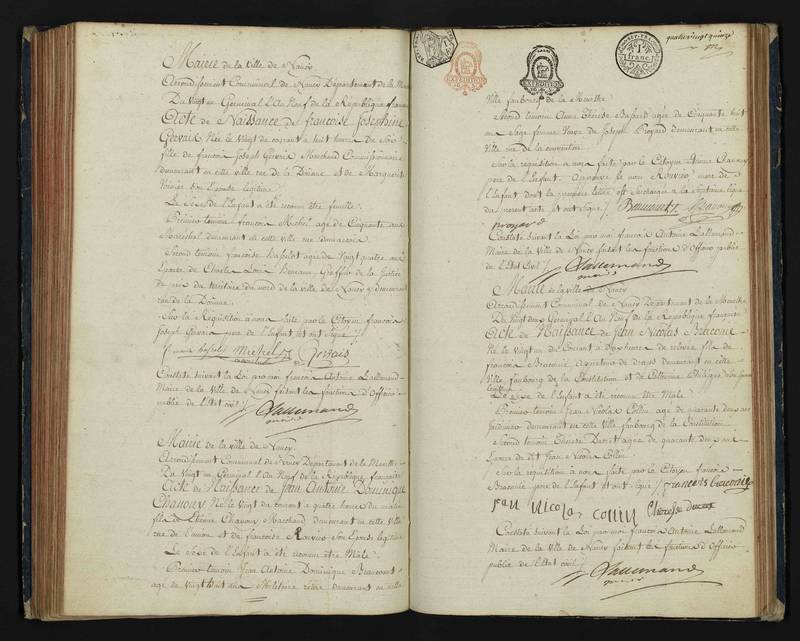 Mairie de la Ville de Nancy
Arrondissement Communal de Nancy Département de la Meurthe
Du Vingt un Germinal l'An Neuf de la République française
Acte de Naissance de françoise Josephine
Gervais Née le Vingt du courant à huit heures du Soir
fille de françois Joseph Gervais Marchand Commissionnaire
demeurant en cette ville rue de la Douane et de Marguerite
son Epouse légitime
Le Sexe de l'Enfant a été reconnu être femelle
Premier temoin françois Michel agé de Cinquante ans
Maréchal demeurant en cette ville rue
Second temoin françoise agée de Vingt quatre ans
Epouse de Charles Louis Greffier de la Justice
de paix du territoire du nord de la ville de Nancy y demeurant
rue de la Douane
Sur la Réquisition à nous faite par le Citoyen françois
Joseph Gervais pere de l'Enfant et ont signé
Michel Gervais
Constaté suivant la Loi par moi françois Antoine Lallemand
Maire de la Ville de Nancy faisant les fonctions d'Officier
public de l'Etat civil
Lallemand
maire
Mairie de la ville de Nancy
Arrondissement Communal de Nancy Département de la Meurthe
Du Vingt un Germinal l'An Neuf de la République française
Acte de Naissance de Jean Antoine Dominique
Chanony Né le Vingt du courant à quatre heures du matin
fils de Etienne Chanony Marchand demeurant en cette Ville
rue de l'union et de françoise Rouvier Son Epouse légitime
Le Sexe de l'Enfant a été reconnu être Mâle
Premier temoin Jean Antoine Dominique Beaucourt
agé de Vingt huit ans Militaire retiré demeurant en cette
quatre vingt quinze
1 franc
Ville faubourg de la Meurthe
Second temoin Anne Therese agée de Cinquante huit
ans Sage femme Veuve de Joseph Proyard demeurant en cette
Ville rue de la convention
Sur la réquisition à nous faite par le Citoyen Etienne Chanony
pere de l'Enfant Rouvier mere de
l'Enfant dont la premiere lettre est Surchargée a la Septieme ligne
du present acte et ont signé
proyard
Constaté suivant la Loi par moi françois Antoine Lallemand
Maire de la Ville de Nancy faisant les fonctions d'Officier public
de l'Etat Civil
Lallemand
maire
Mairie de la ville de Nancy
Arrondissement Communal de Nancy Département de la Meurthe
Du Vingt deux Germinal l'An Neuf de la République française
Acte de Naissance de Jean Nicolas Braconié
Né le Vingt un du Courant à Sept heures de relevée fils de
francois Braconié demeurant en cette
Ville faubourg de la Constitution et de Catherine
Le Sexe de l'Enfant a été reconnu être Mâle
Premier temoin Jean Nicolas Collin agé de quarante deux ans
Jardinier demeurant en cette Ville faubourg de la Constitution
Second temoin Therese agée de quarante deux ans
Epouse de dit Jean Nicolas Collin
Sur la requisition à nous faite par le Citoyen francois
Braconié pere de l'Enfant et ont signé francois
Jean nicolas collin Therese
Constaté suivant la Loi par moi françois Antoine Lallemand
Maire de la Ville de Nancy faisant les fonctions d'Officier
public de l'Etat civil
Lallemand
maire